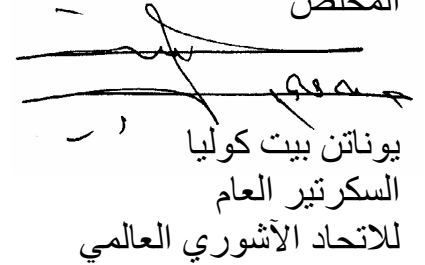 المخلص
يوناتن بيت كوليا
السكرتير العام
للاتحاد الآشوري العالمي